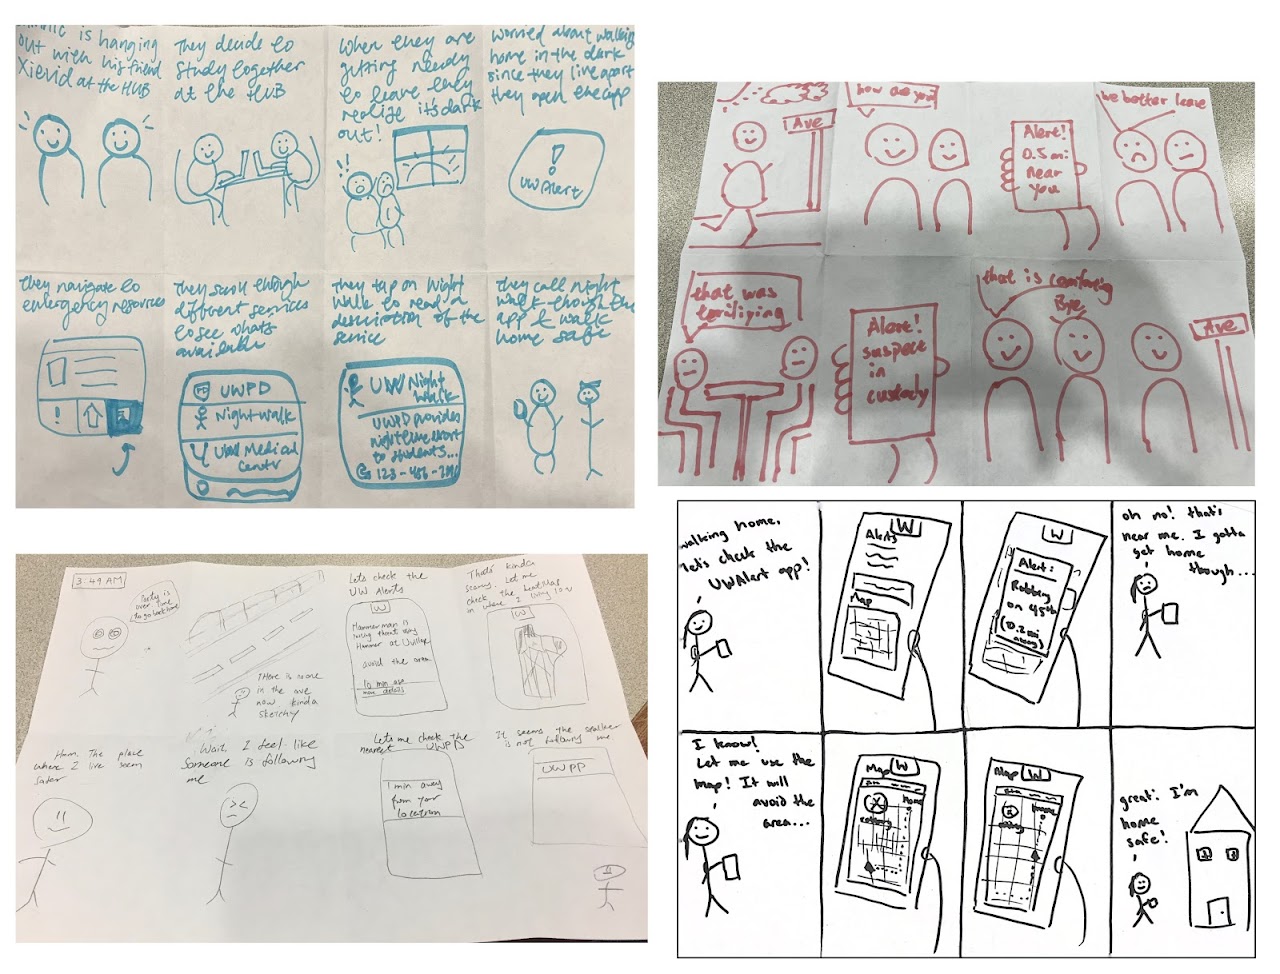 is hanging
out with his friend
at the HUB
They decide to
study together
at the HUB
When they are
getting ready
to leave they
realize it's dark
out!
worried about walking
home in the dark
since they live apart
they open the app
!
UWAlert
they navigate to
emergency resources
!
They scroll through
different services
to see what's
available
UWPD
Nightwalk
UW Medical
they tap on Night
Walk to read a
description of the
service
UW Night
Walk
UWPD provides
to students...
they call night
walk though the
app & walk
home safe
Ave
how are you?
Alert!
0.5 mi
near
you
be better leave
that was
Alert!
suspect
in
custody
that is comforting
Bye
Ave
3:49 AM
Party is
over. Time
to go back home
There is no one
in the ave
now kinda
sketchy
Lets check the
UW Alerts
W
Hammer man is
Hammer at
avoid the area.
10 min ago
more details
That's kinda
scary. Let me
check the heatmap
in where I
W
Hmm. The place
where I live seem
safer
Wait I feel like
Someone is following
me
Lets me check the
nearest UWPD
1 min away
from your
location
It seems the stalker
is not following me
UWPD
walking home,
let's check the
UWAlert app!
W
Alerts
Map
W
Alert:
Robbery
on 45th
(0.2 mi
away)
oh no! that's
near me. I gotta
get home
though...
I know!
Let me use the
map! It will
avoid the
area...
Map W
home
Map W
home
great! I'm
home
safe!